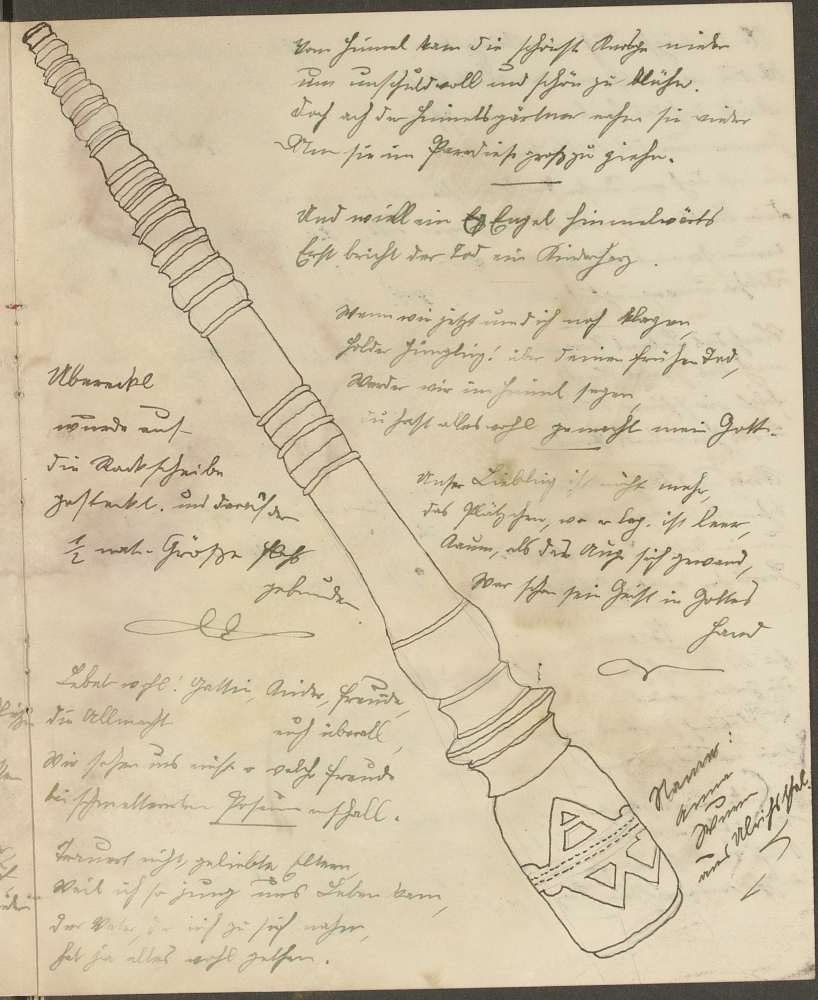 Vom Himmel kam die schönste Knospe nieder
um unschuldvoll und schön zu blühn.
Doch ach der Himmelsgärtner nahm sie wieder
Um sie im Paradiese großzuziehn.
Und will ein Engel himmelwärts
Erst bricht der Tod ein Kinderherz.
Wenn wir jetzt um dich noch klagen,
Holder Jüngling! über deinen frühen Tod,
Werden wir im Himmel sagen,
Du hast alles wohl gemacht mein Gott.
Unser Liebling ist nicht mehr,
das Plätzchen, wo er lag, ist leer,
Kaum, als das Aug sich gewand,
War schon sein Geist in Gottes
Hand
wurde auf
die Rockscheibe
gesteckt. und darauf der
1/2 nat. Größe
gebunden
Lebet wohl! Gattin, Kinder, Freunde,
die Allmacht
euch überall,
Wir sehen uns welche Freude
bei schmetternden Posaunenschall.
Trauert nicht, geliebte Eltern,
Weil ich so jung ums Leben kam,
der Vater, der mich zu sich nahm,
hat ja alles wohl gethan.
AW
Name:
Anna
aus Ulrichsthal.